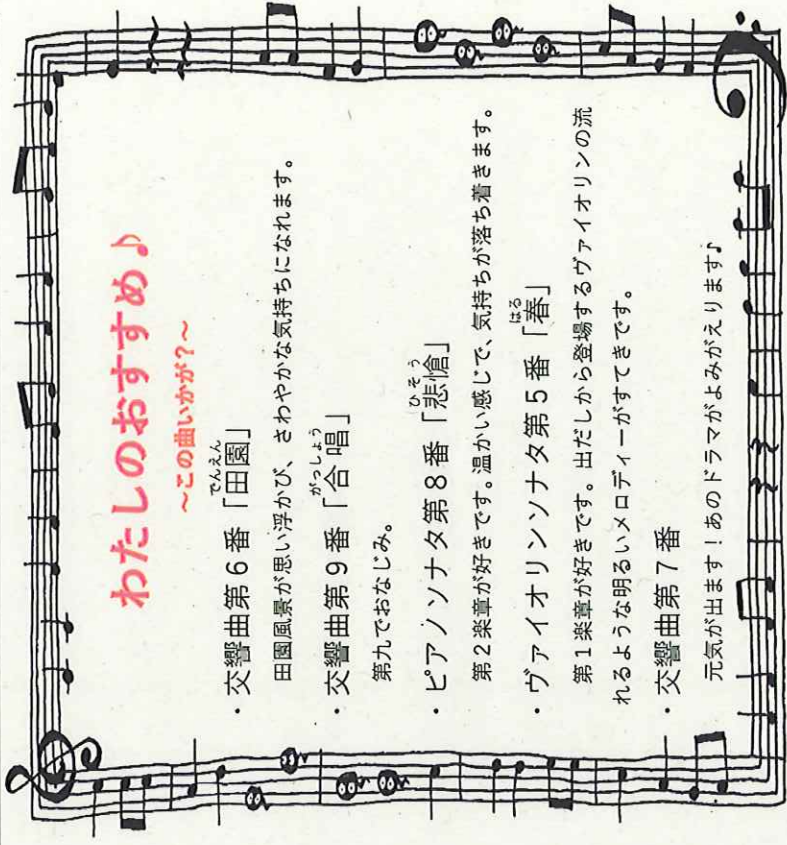 わたしのおすすめ♪
～この曲いかが？～
・交響曲第６番「田園」
でんえん
田園風景が思い浮かび、さわやかな気持ちになれます。
・交響曲第９番「合唱」
がっしょう
第九でおなじみ。
・ピアノソナタ第８番「悲愴」
ひそう
第２楽章が好きです。温かい感じで、気持ちが落ち着きます。
・ヴァイオリンソナタ第５番「春」
はる
第１楽章が好きです。出だしから登場するヴァイオリンの流
れるような明るいメロディーがすてきです。
・交響曲第７番
元気が出ます！あのドラマがよみがえります♪